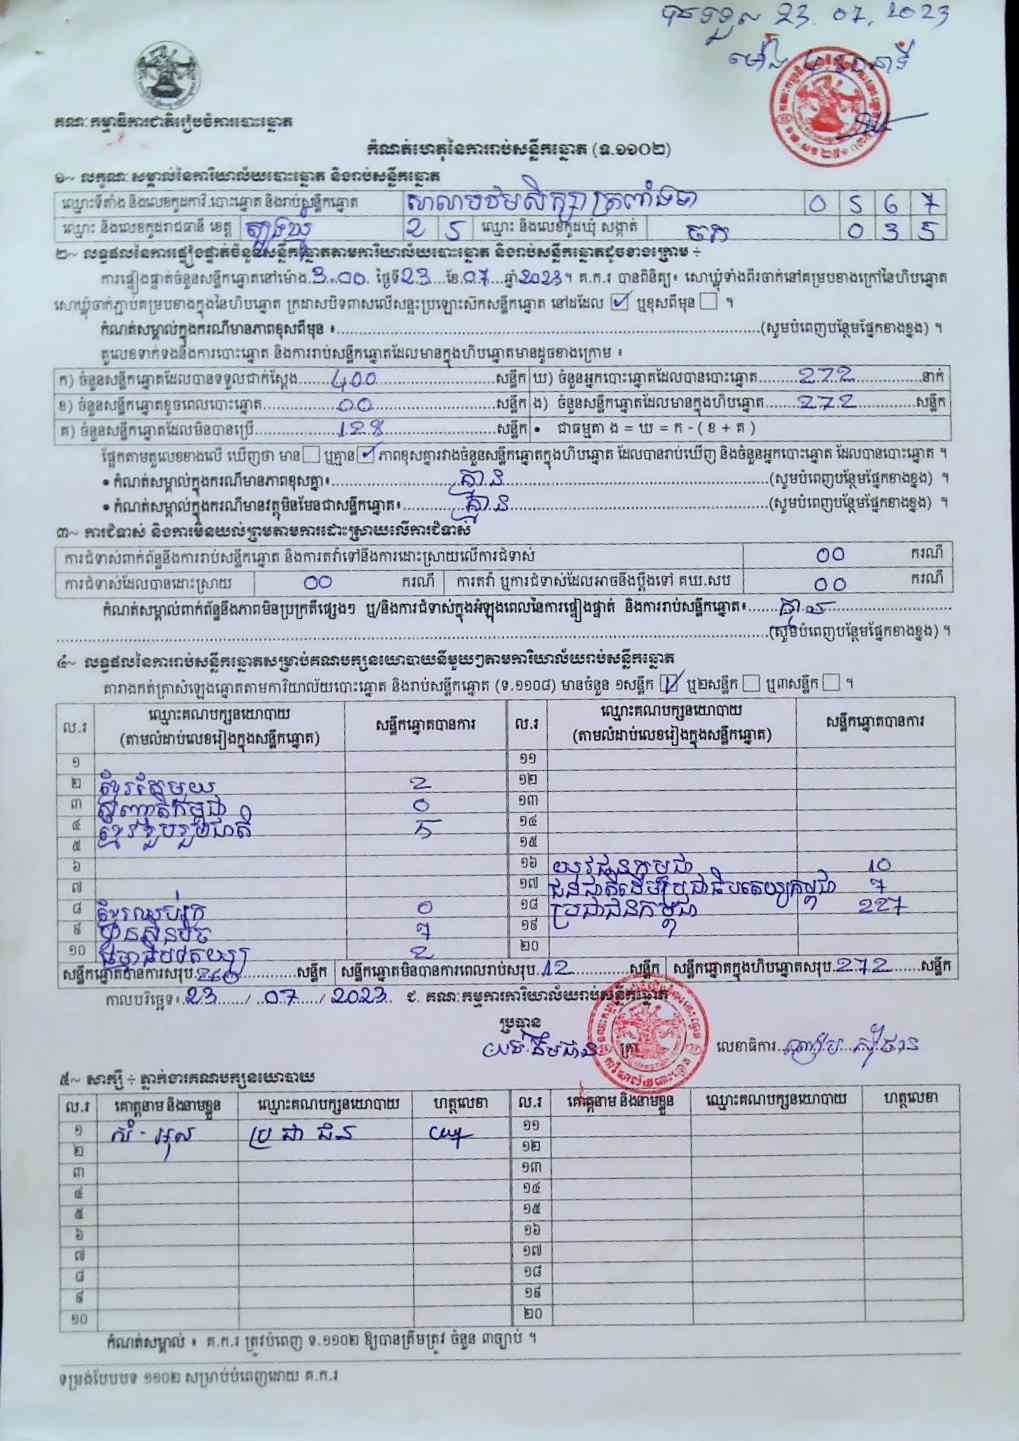 បានទទួល 23.07.2023
ម៉ោង
គណៈកម្មាធិការជាតិរៀបចំការបោះឆ្នោត
កំណត់ហេតុនៃការរាប់សន្លឹកឆ្នោត (ទ.១១០២)
១~ លក្ខណៈសម្គាល់នៃការិយាល័យបោះឆ្នោត និងរាប់សន្លឹកឆ្នោត
ឈ្មោះទីតាំង និងលេខកូដការិ.បោះឆ្នោត និងរាប់សន្លឹកឆ្នោត សាលាបឋមសិក្សាត្រពាំងទា 0 5 6 7
ឈ្មោះ និងលេខកូដរាជធានី ខេត្ត ត្បូងឃ្មុំ 2 5 ឈ្មោះ និងលេខកូដឃុំ សង្កាត់ ចក 0 3 5
២~ លទ្ធផលនៃការផ្ទៀងផ្ទាត់ចំនួនសន្លឹកឆ្នោតតាមការិយាល័យបោះឆ្នោត និងរាប់សន្លឹកឆ្នោតដូចខាងក្រោម ÷
ការផ្ទៀងផ្ទាត់ចំនួនសន្លឹកឆ្នោតនៅម៉ោង 3.00 ថ្ងៃទី 23 ខែ 07 ឆ្នាំ 2023។ គ.ក.រ បានពិនិត្យ៖ សោឃ្លុំទាំងពីរចាក់នៅគម្របខាងក្រៅនៃហិបឆ្នោត
សោឃ្លុំចាក់ភ្ជាប់គម្របខាងក្នុងនៃហិបឆ្នោត ក្រដាសបិទពាសលើសន្ទះប្រឡោះសិកសន្លឹកឆ្នោត នៅដដែល ☑ ឬខុសពីមុន ☐ ។
កំណត់សម្គាល់ក្នុងករណីមានភាពខុសពីមុន ៖ (សូមបំពេញបន្ថែមផ្នែកខាងខ្នង) ។
តួលេខទាក់ទងនឹងការបោះឆ្នោត និងការរាប់សន្លឹកឆ្នោតដែលមានក្នុងហិបឆ្នោតមានដូចខាងក្រោម ៖
ក) ចំនួនសន្លឹកឆ្នោតដែលបានទទួលជាក់ស្តែង 400 សន្លឹក ឃ) ចំនួនអ្នកបោះឆ្នោតដែលបានបោះឆ្នោត 272 នាក់
ខ) ចំនួនសន្លឹកឆ្នោតខូចពេលបោះឆ្នោត 00 សន្លឹក ង) ចំនួនសន្លឹកឆ្នោតដែលមានក្នុងហិបឆ្នោត 272 សន្លឹក
គ) ចំនួនសន្លឹកឆ្នោតដែលមិនបានប្រើ 128 សន្លឹក • ជាធម្មតា ង = ឃ = ក - ( ខ + គ )
ផ្អែកតាមតួលេខខាងលើ ឃើញថា មាន ☐ ឬគ្មាន ☑ ភាពខុសគ្នារវាងចំនួនសន្លឹកឆ្នោតក្នុងហិបឆ្នោត ដែលបានរាប់ឃើញ និងចំនួនអ្នកបោះឆ្នោត ដែលបានបោះឆ្នោត ។
• កំណត់សម្គាល់ក្នុងករណីមានភាពខុសគ្នា៖ គ្មាន (សូមបំពេញបន្ថែមផ្នែកខាងខ្នង) ។
• កំណត់សម្គាល់ក្នុងករណីមានវត្ថុមិនមែនជាសន្លឹកឆ្នោត៖ គ្មាន (សូមបំពេញបន្ថែមផ្នែកខាងខ្នង) ។
៣~ ការជំទាស់ និងការមិនយល់ព្រមតាមការដោះស្រាយលើការជំទាស់
ការជំទាស់ពាក់ព័ន្ធនឹងការរាប់សន្លឹកឆ្នោត និងការតវ៉ាទៅនឹងការដោះស្រាយលើការជំទាស់ 00 ករណី
ការជំទាស់ដែលបានដោះស្រាយ 00 ករណី ការតវ៉ា ឬការជំទាស់ដែលអាចនឹងប្តឹងទៅ គឃ.សប 00 ករណី
កំណត់សម្គាល់ពាក់ព័ន្ធនឹងភាពមិនប្រក្រតីផ្សេងៗ ឬ/និងការជំទាស់ក្នុងអំឡុងពេលនៃការផ្ទៀងផ្ទាត់ និងការរាប់សន្លឹកឆ្នោត៖ គ្មាន
(សូមបំពេញបន្ថែមផ្នែកខាងខ្នង) ។
៤~ លទ្ធផលនៃការរាប់សន្លឹកឆ្នោតសម្រាប់គណបក្សនយោបាយនីមួយៗតាមការិយាល័យរាប់សន្លឹកឆ្នោត
តារាងកត់ត្រាសំឡេងឆ្នោតតាមការិយាល័យបោះឆ្នោត និងរាប់សន្លឹកឆ្នោត (ទ.១១០៨) មានចំនួន ១សន្លឹក ☑ ឬ២សន្លឹក ☐ ឬ៣សន្លឹក ☐ ។
ល.រ ឈ្មោះគណបក្សនយោបាយ (តាមលំដាប់លេខរៀងក្នុងសន្លឹកឆ្នោត) សន្លឹកឆ្នោតបានការ ល.រ ឈ្មោះគណបក្សនយោបាយ (តាមលំដាប់លេខរៀងក្នុងសន្លឹកឆ្នោត) សន្លឹកឆ្នោតបានការ
១ ១១
២ ខ្មែរតែមួយ 2 ១២
៣ សញ្ជាតិកម្ពុជា 0 ១៣
៤ ខ្មែររួបរួមជាតិ 5 ១៤
៥ ១៥
៦ ១៦ យុវជនកម្ពុជា 10
៧ ១៧ ជនជាតិដើមប្រជាធិបតេយ្យកម្ពុជា 7
៨ ខ្មែរឈប់ក្រ 0 ១៨ ប្រជាជនកម្ពុជា 227
៩ ហ្វ៊ុនស៊ិនប៉ិច 7 ១៩
១០ ធម្មាធិបតេយ្យ 2 ២០
សន្លឹកឆ្នោតបានការសរុប 260 សន្លឹក សន្លឹកឆ្នោតមិនបានការពេលរាប់សរុប 12 សន្លឹក សន្លឹកឆ្នោតក្នុងហិបឆ្នោតសរុប 272 សន្លឹក
កាលបរិច្ឆេទ៖ 23 / 07 / 2023 ជ. គណៈកម្មការការិយាល័យរាប់សន្លឹកឆ្នោត
ប្រធាន
ត្រា លេខាធិការ
៥~ សាក្សី ÷ ភ្នាក់ងារគណបក្សនយោបាយ
ល.រ គោត្តនាម និងនាមខ្លួន ឈ្មោះគណបក្សនយោបាយ ហត្ថលេខា ល.រ គោត្តនាម និងនាមខ្លួន ឈ្មោះគណបក្សនយោបាយ ហត្ថលេខា
១ សំ - អុស ប្រជាជន ១១
២ ១២
៣ ១៣
៤ ១៤
៥ ១៥
៦ ១៦
៧ ១៧
៨ ១៨
៩ ១៩
១០ ២០
កំណត់សម្គាល់ ៖ គ.ក.រ ត្រូវបំពេញ ទ.១១០២ ឱ្យបានត្រឹមត្រូវ ចំនួន ៣ច្បាប់ ។
ទម្រង់បែបបទ ១១០២ សម្រាប់បំពេញដោយ គ.ក.រ